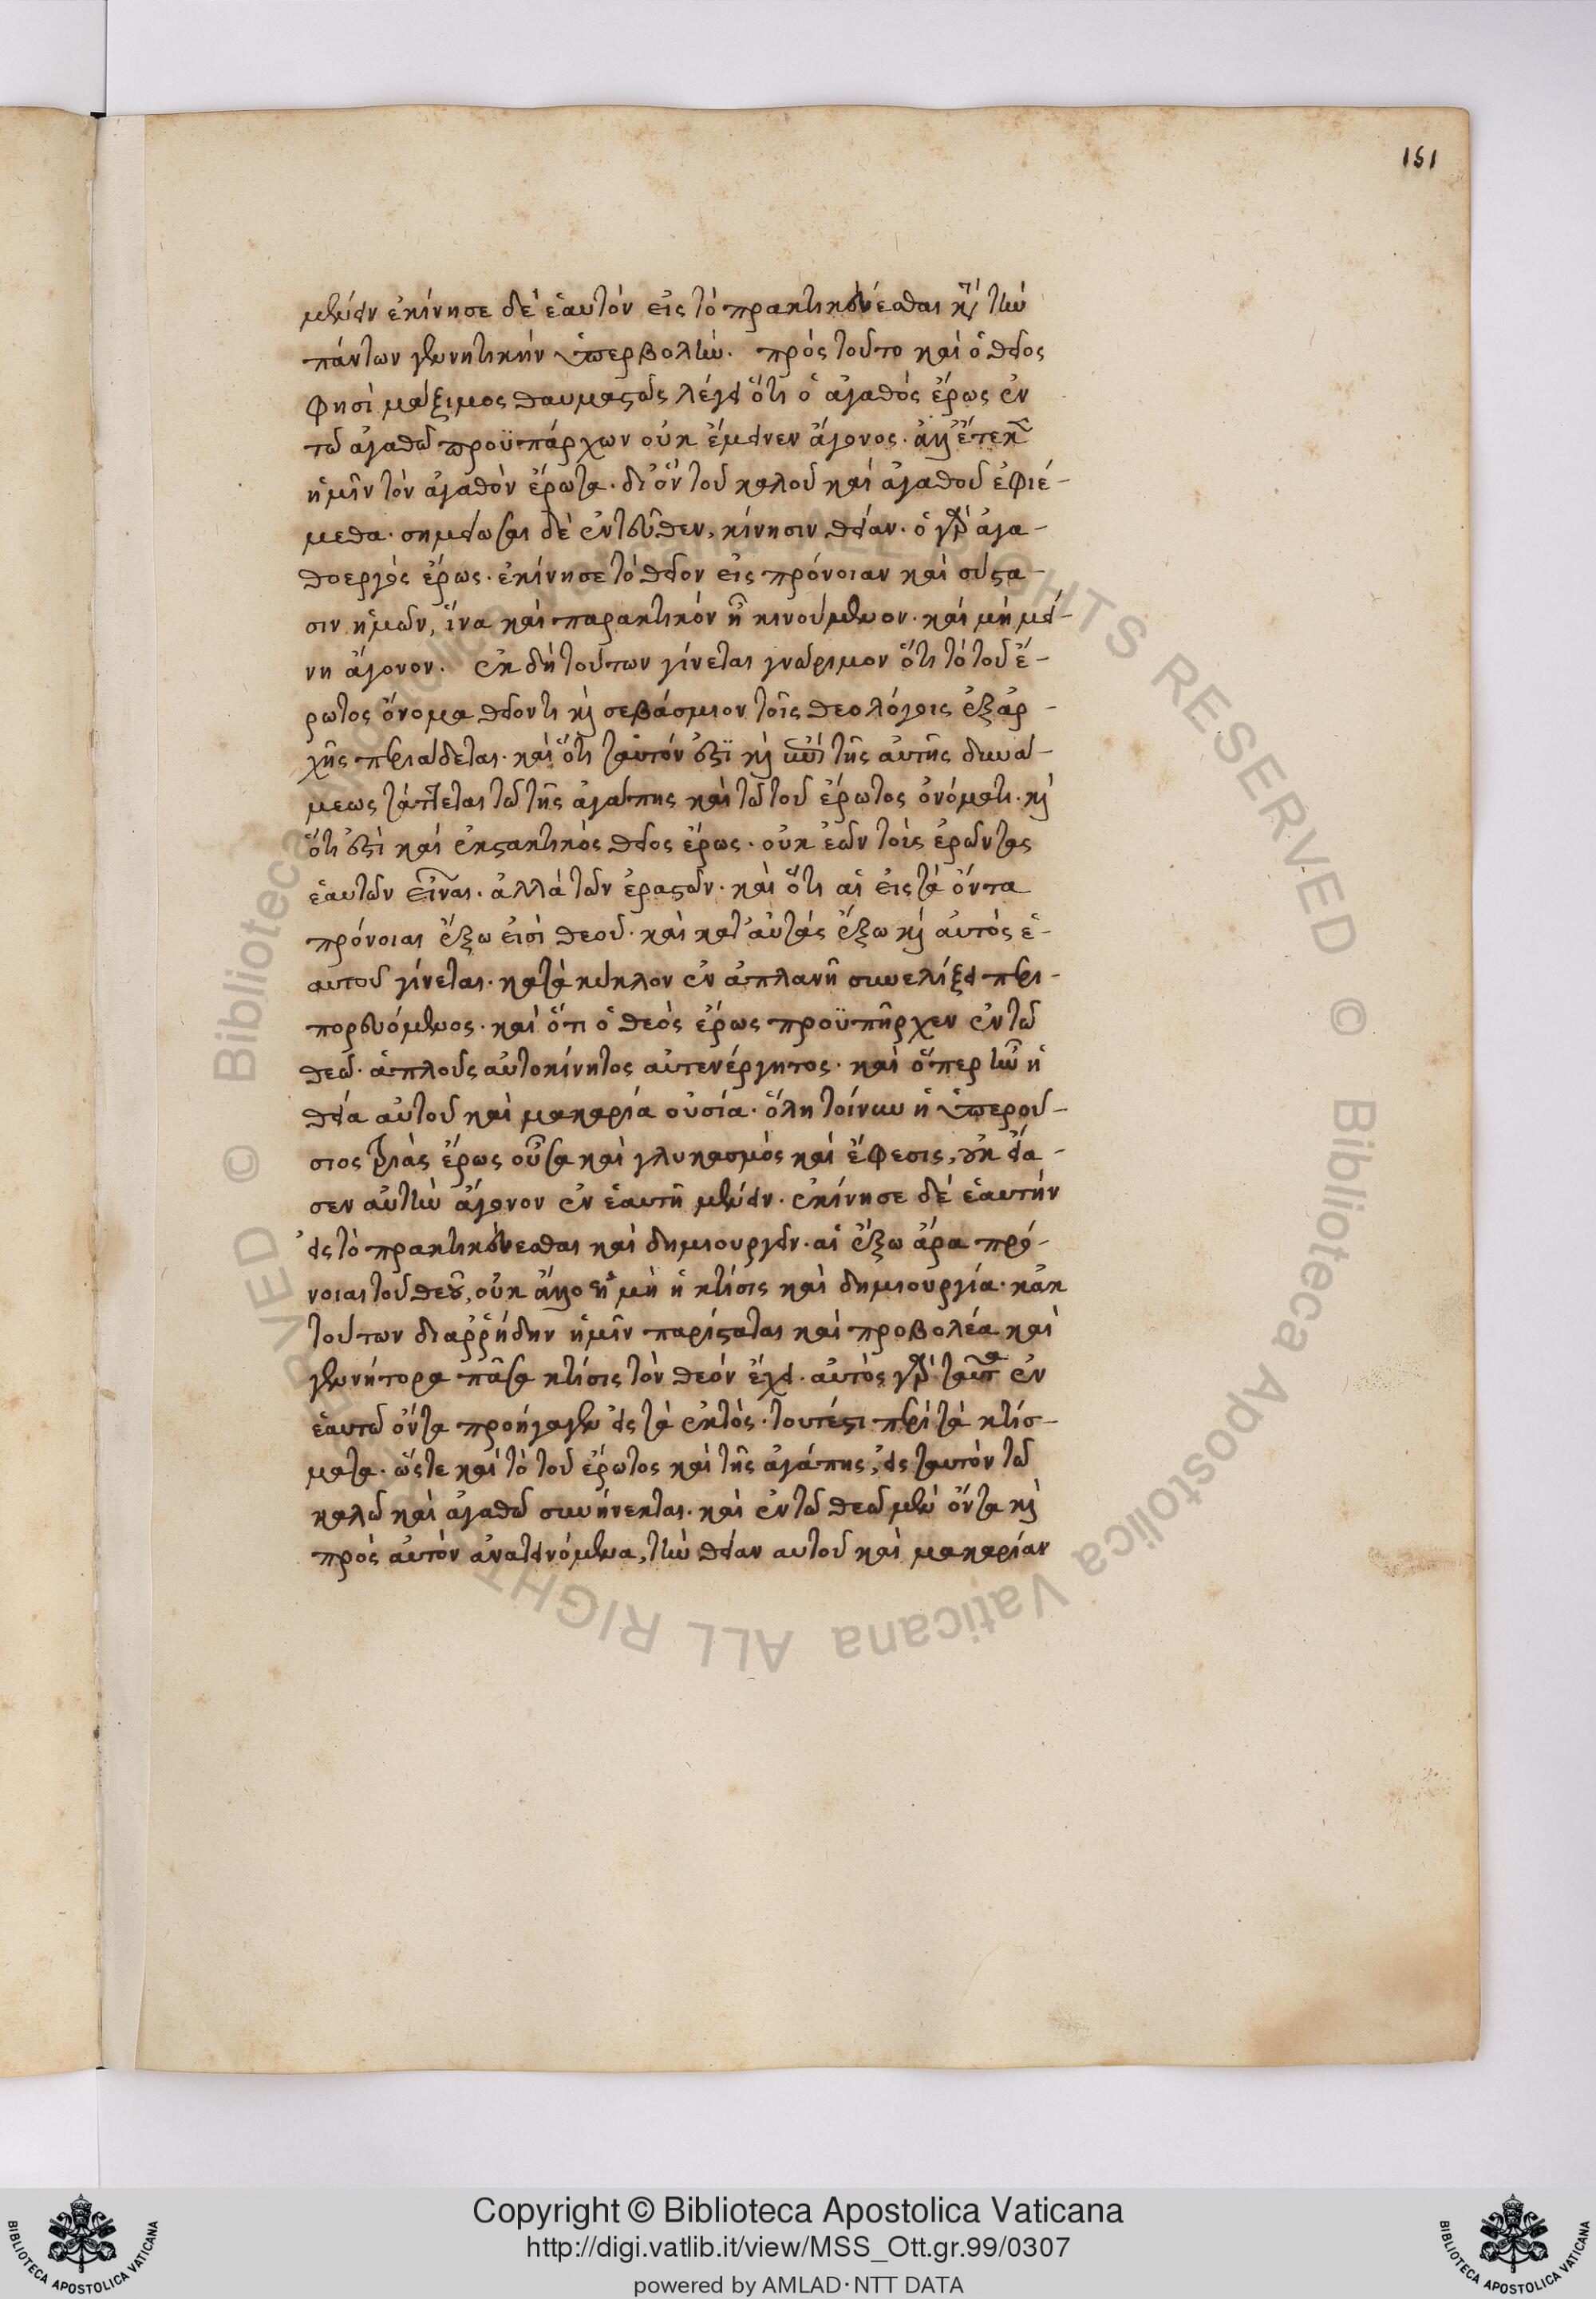 151
μένειν ἐκίνησε δὲ ἑαυτὸν εἰς τὸ πρακτικεύεσθαι κατὰ τὴν
πάντων γενητικὴν ὑπερβολήν. πρὸς τοῦτο καὶ ὁ θεῖος
φησὶ μάξιμος θαυμαστῶς λέγει ὅτι ὁ ἀγαθὸς ἔρως ἐν
τῶ ἀγαθῶ προϋπάρχων οὐκ ἔμεινεν ἄγονος. ἀλλ' ἔτεκεν
ἡμῖν τὸν ἀγαθὸν ἔρωτα. δι' ὃν τοῦ καλοῦ καὶ ἀγαθοῦ ἐφιέ-
μεθα. σημείωσαι δὲ ἐντεῦθεν, κίνησιν θείαν. ὁ γὰρ ἀγα-
θοεργὸς ἔρως. ἐκίνησε τὸ θεῖον εἰς πρόνοιαν καὶ σύστα-
σιν ἡμῶν, ἵνα καὶ παρακτικὸν ἦ κινούμενον. καὶ μὴ μεί-
νη ἄγονον. ἐκ δὴ τούτων γίνεται γνώριμον ὅτι τὸ τοῦ ἔ-
ρωτος ὄνομα θεῖον τι καὶ σεβάσμιον τοῖς θεολόγοις ἐξ ἀρ-
χῆς περιάδεται. καὶ ὅτι ταὐτόν ἐστι καὶ ἐπὶ τῆς αὐτῆς δυνά-
μεως τάττεται τῶ τῆς ἀγάπης καὶ τῶ τοῦ ἔρωτος ὀνόματι. καὶ
ὅτι ἐστὶ καὶ ἐκστακτικὸς θεῖος ἔρως. οὐκ ἐῶν τοὺς ἐρῶντας
ἑαυτῶν εἶναι. ἀλλὰ τῶν ἐραστῶν. καὶ ὅτι αἱ εἰς τὰ ὄντα
πρόνοιαι ἔξω εἰσὶ θεοῦ. καὶ κατ' αὐτὰς ἔξω καὶ αὐτὸς ἑ-
αυτοῦ γίνεται. κατὰ κύκλον ἐν ἀπλανῆ συνελίξει περι-
πορευόμενος. καὶ ὅτι ὁ θεὸς ἔρως προϋπῆρχεν ἐν τῶ
θεῶ. ἁπλοῦς αὐτοκίνητος αὐτενέργητος. καὶ ὅπερ ἦν ἡ
θεία αὐτοῦ καὶ μακαρία οὐσία. ὅλη τοίνυν ἡ ὑπερού-
σιος τριὰς ἔρως οὖσα καὶ γλυκασμὸς καὶ ἔφεσις, οὐκ εἴα-
σεν αὐτὴν ἄγονον ἐν ἑαυτῆ μένειν. ἐκίνησε δὲ ἑαυτὴν
εἰς τὸ πρακτικεύεσθαι καὶ δημιουργεῖν. αἱ ἔξω ἄρα πρό-
νοιαι τοῦ θεοῦ, οὐκ ἄλλο εἰ μὴ ἡ κτίσις καὶ δημιουργία. κἀκ
τούτων διαῤῥήδην ἡμῖν παρίσταται καὶ προβολέα καὶ
γενήτορα πᾶσα κτίσις τὸν θεὸν ἔχει. αὐτὸς γὰρ ταῦτα ἐν
ἑαυτῶ ὄντα προήγαγεν εἰς τὰ ἐκτὸς. τουτέστι περὶ τὰ κτίσ-
ματα. ὥστε καὶ τὸ τοῦ ἔρωτος καὶ τῆς ἀγάπης, εἰς ταυτὸν τῶ
καλῶ καὶ ἀγαθῶ συνήνεκται. καὶ ἐν τῶ θεῶ μὲν ὄντα καὶ
πρὸς αὐτὸν ἀνατεινόμενα, τὴν θείαν αυτοῦ καὶ μακαρίαν
Copyright © Biblioteca Apostolica Vaticana
http://digi.vatlib.it/view/MSS_Ott.gr.99/0307
powered by AMLAD·NTT DATA